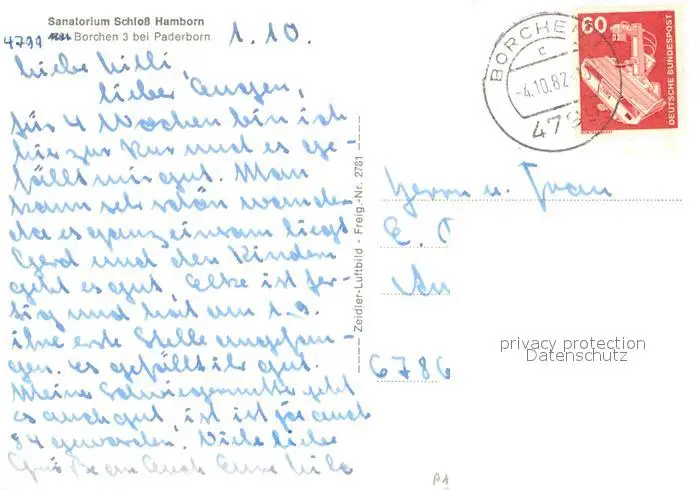 Sanatorium Schloß Hamborn
4799 Borchen 3 bei Paderborn
1.10.
Liebe Lilli,
lieber Eugen,
für 4 Wochen bin ich
hier zur Kur und es ge-
fällt mir gut. Man
kann sehr schön wandern
da es ganz einsam liegt
Gerd und den Kindern
geht es gut. Elke ist fer-
tig und hat am 1.9.
ihre erste Stelle angefan-
gen. es gefällt ihr gut.
Meine Schwiegermutter geht
es auch gut, ist ja auch
84 geworden. Viele liebe
Grüße an Euch Eure
Zeidler-Luftbild - Freig.-Nr. 2781
BORCHEN
c
-4.10.82
479
60
DEUTSCHE BUNDESPOST
Herrn u. Frau
E.
6786
privacy protection
Datenschutz